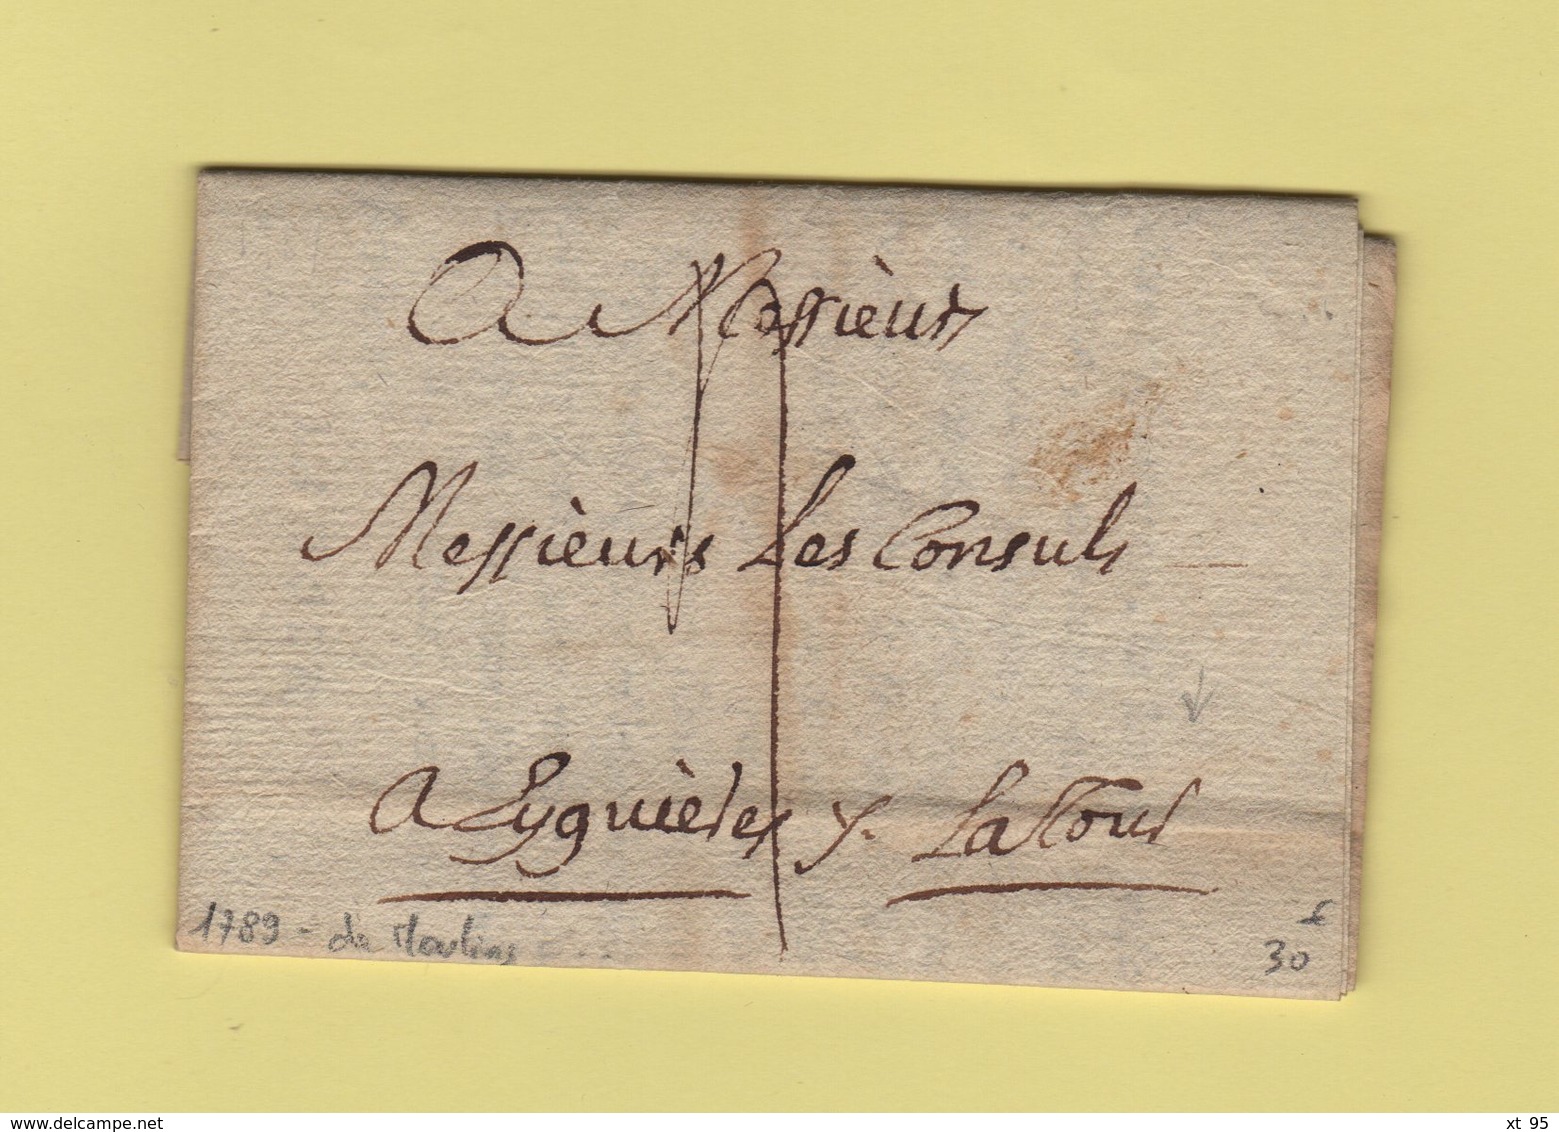 A Messieurs
Messieurs Les Consuls
A Eyguières p. LaTour
1789 - de Moulins
30
© delcampe.net
xt 95